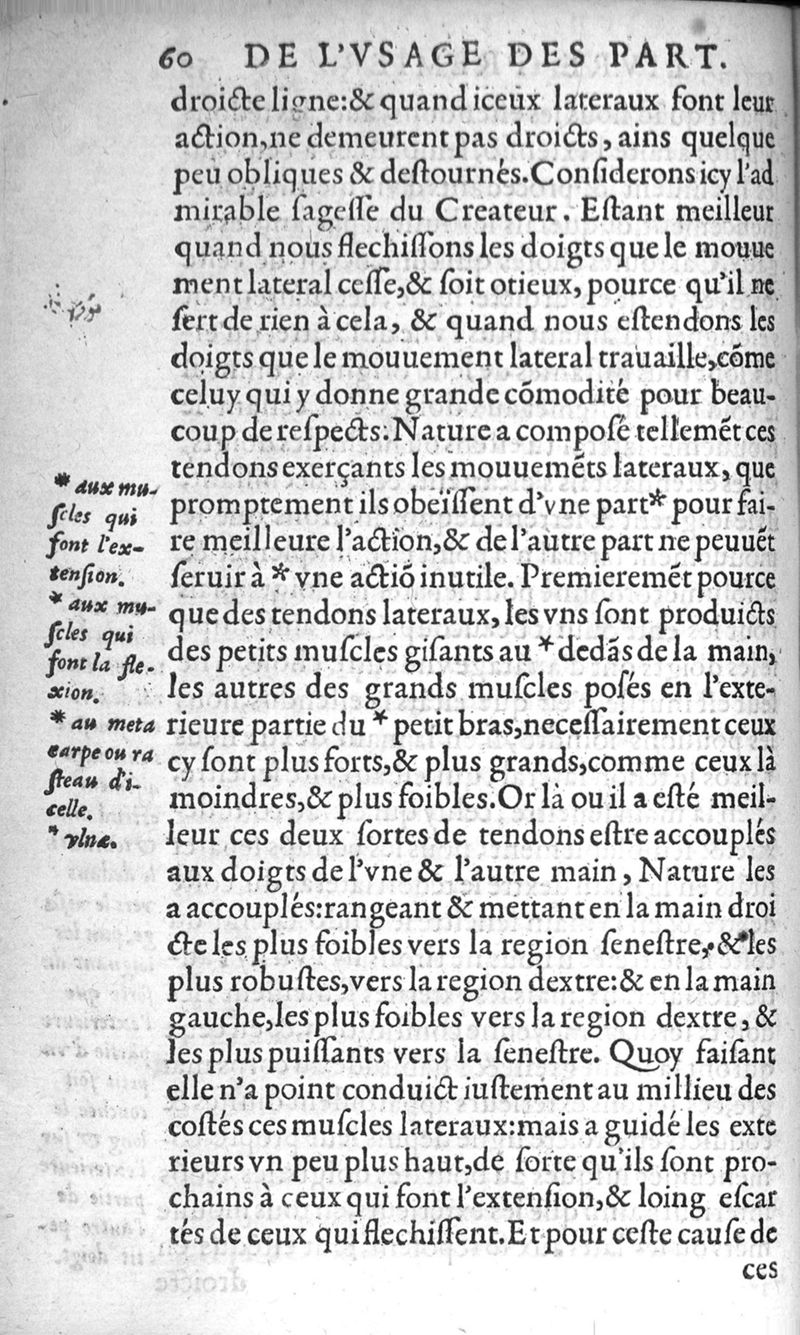 60 DE L'VSAGE DES PART.
droicte ligne:& quand iceux lateraux font leur
action,ne demeurent pas droicts, ains quelque
peu obliques & deſtournés.Conſiderons icy l'ad
mirable ſageſſe du Createur. Eſtant meilleur
quand nous flechiſſons les doigts que le mouue
ment lateral ceſſe,& ſoit otieux, pource qu'il ne
ſert de rien à cela, & quand nous eſtendons les
doigts que le mouuement lateral trauaille,cõme
celuy qui y donne grande cõmodité pour beau-
coup de reſpects:Nature a compoſé tellemẽt ces
tendons exerçants les mouuemẽts lateraux, que
promptement ils obeïſſent d'vne part* pour fai-
re meilleure l'action,& de l'autre part ne peuuẽt
ſeruir à * vne actiõ inutile. Premieremẽt pource
que des tendons lateraux, les vns ſont produicts
des petits muſcles giſants au * dedãs de la main,
les autres des grands muſcles poſés en l'exte-
rieure partie du * petit bras,neceſſairement ceux
cy ſont plus forts,& plus grands,comme ceux là
moindres,& plus foibles.Or là ou il a eſté meil-
leur ces deux ſortes de tendons eſtre accouplés
aux doigts de l'vne & l'autre main, Nature les
a accouplés:rangeant & mettant en la main droi
cte les plus foibles vers la region ſeneſtre,& les
plus robuſtes,vers la region dextre:& en la main
gauche,les plus foibles vers la region dextre, &
les plus puiſſants vers la ſeneſtre. Quoy faiſant
elle n'a point conduict iuſtement au millieu des
coſtés ces muſcles lateraux:mais a guidé les exte
rieurs vn peu plus haut,de ſorte qu'ils ſont pro-
chains à ceux qui font l'extenſion,& loing eſcar
tés de ceux qui flechiſſent.Et pour ceſte cauſe de
ces
* aux mu-
ſcles qui
font l'ex-
tenſion.
* aux mu-
ſcles qui
font la fle-
xion.
* au meta
carpe ou ra
ſteau d'i-
celle.
* vlna.